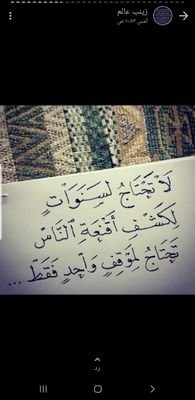 زينب عالم
أمس ١٠:٤٣ ص
لَا تَحْتَاجُ لِسَنَوَاتٍ
لِكَشْفِ أَقْنِعَةِ النَّاسْ
تَحْتَاجُ لِمَوْقِفٍ وَاحِدٍ فَقَطْ ...
رد